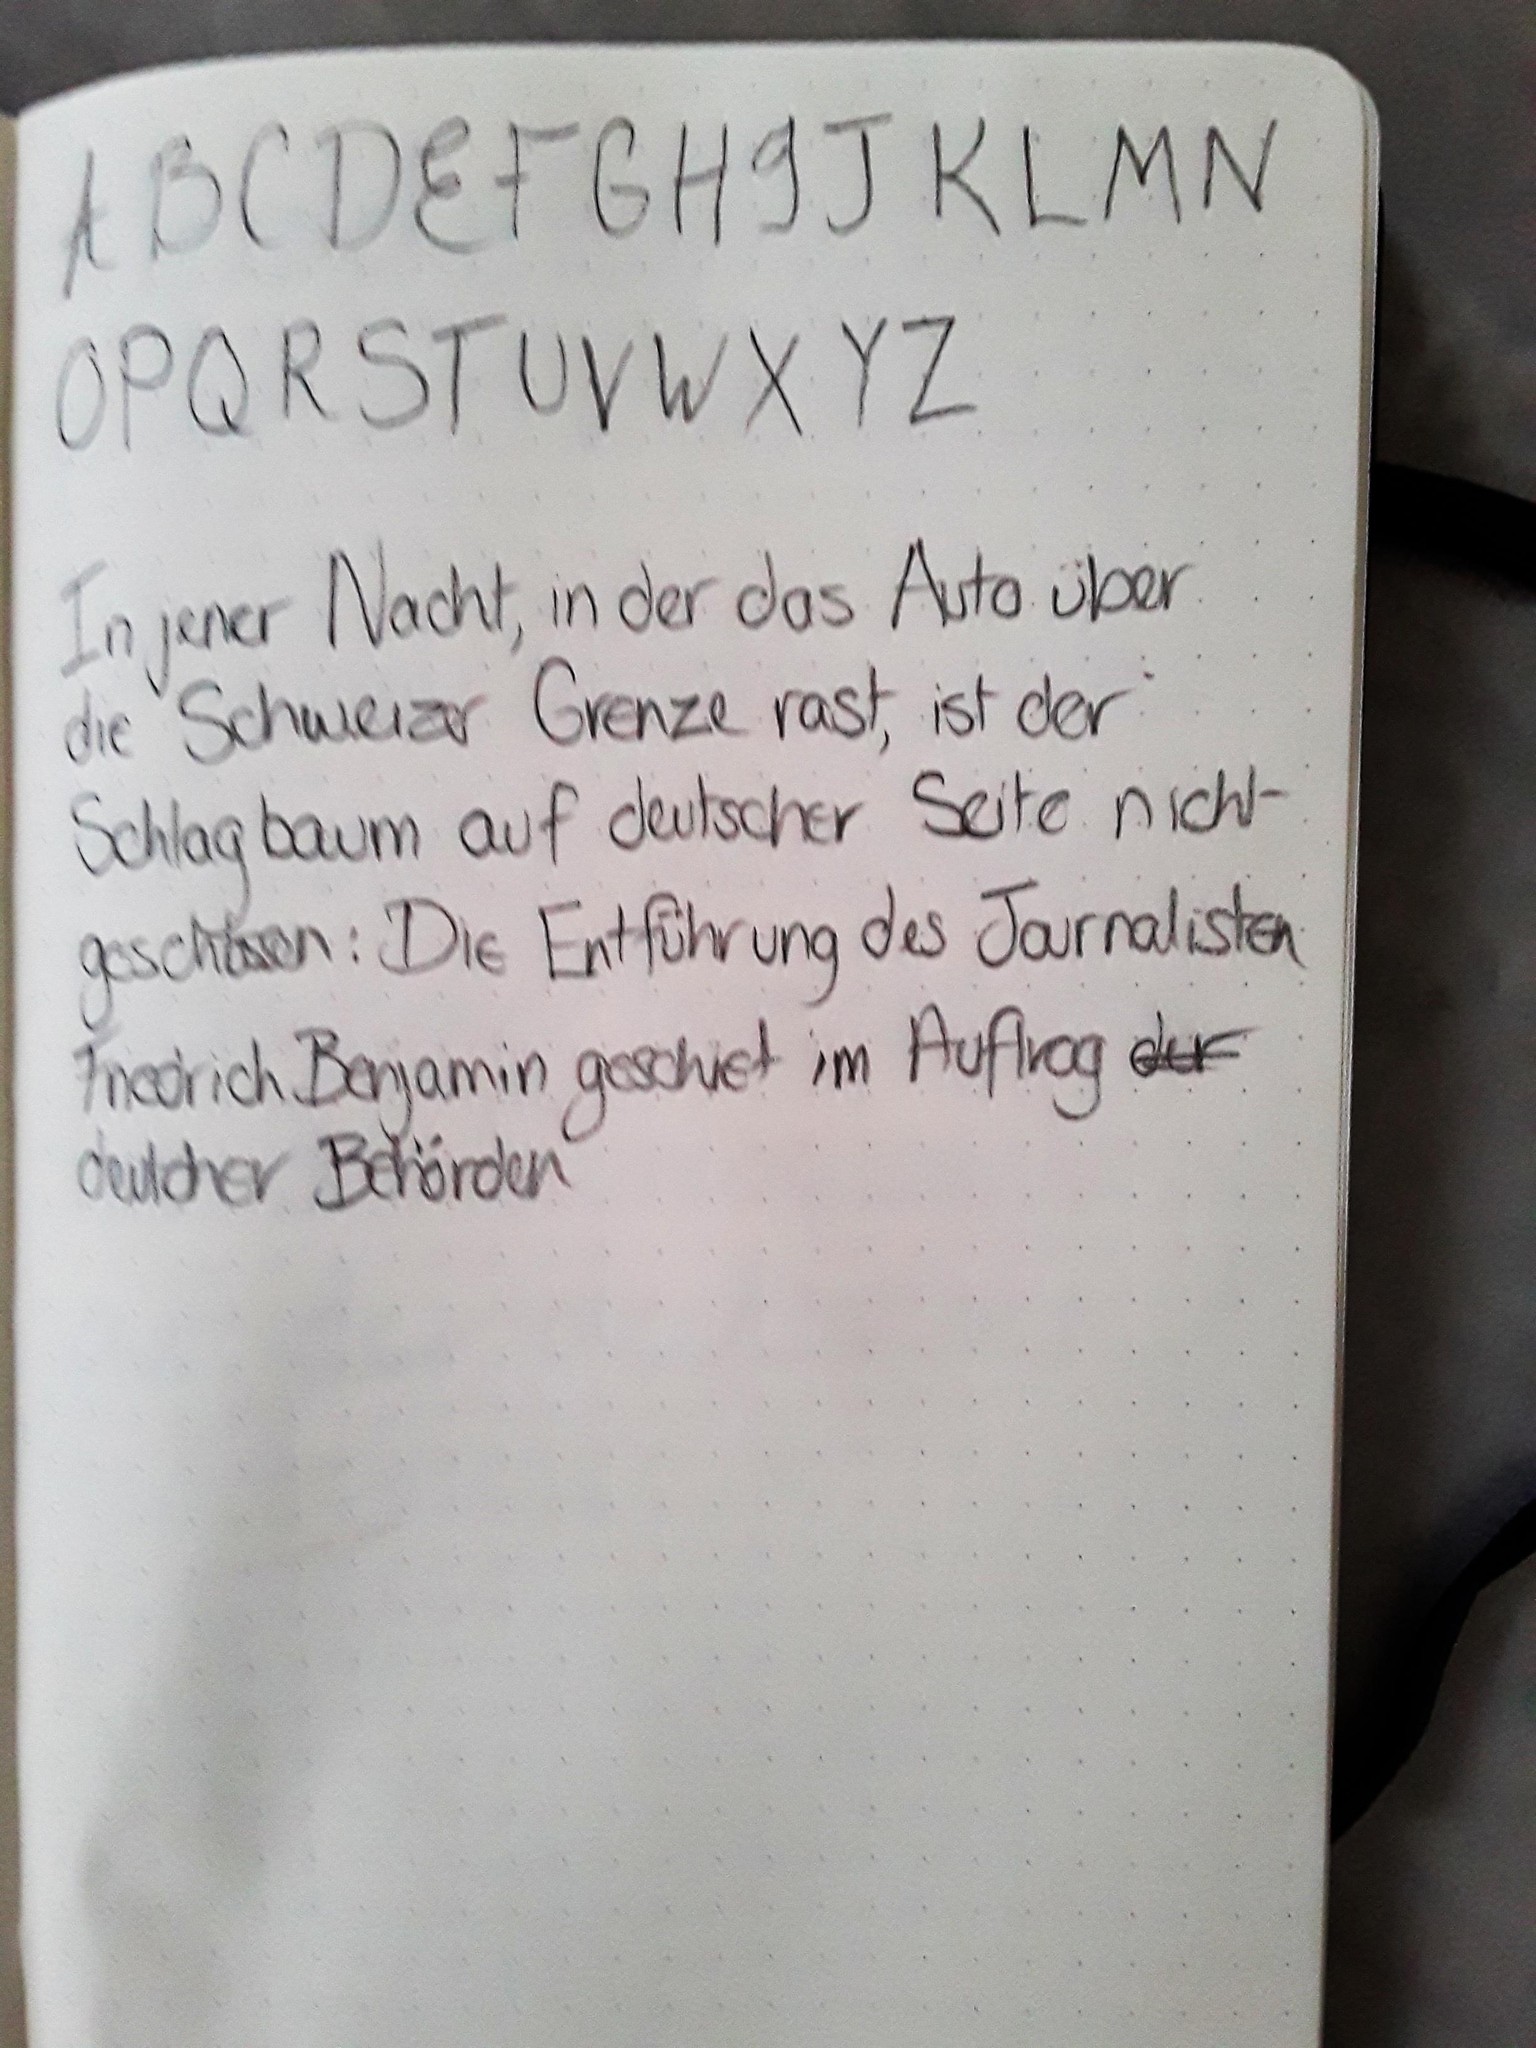 A B C D E F G H I J K L M N
O P Q R S T U V W X Y Z
In jener Nacht, in der das Auto über
die Schweizer Grenze rast, ist der
Schlagbaum auf deutscher Seite nicht
geschlossen: Die Entführung des Journalisten
Friedrich Benjamin geschiet im Auftrag der
deutcher Behörden